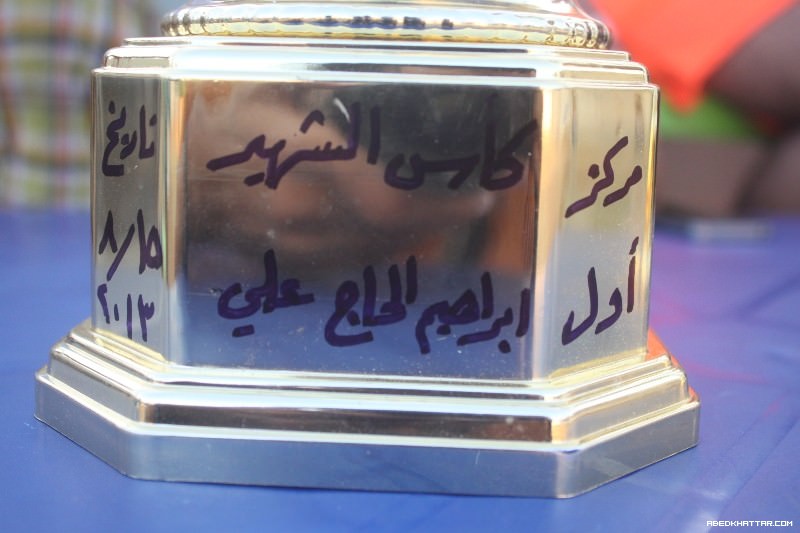 مركز
أول
كأس الشهيد
ابراهيم الحاج علي
تاريخ
١٥/٨
٢٠١٣
ABEDKHATTAR.COM